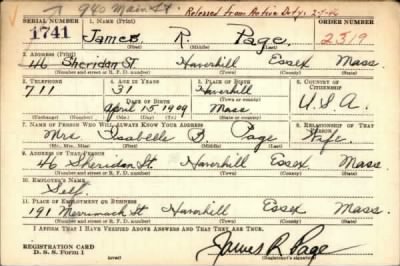 940 Main St. Released from Active Duty: 2-5-46
SERIAL NUMBER 1. NAME (Print) ORDER NUMBER
1741 James R. Page 2319
(First) (Middle) (Last)
2. ADDRESS (Print)
46 Sheridan St. Haverhill Essex Mass.
(Number and street or R. F. D. number) (Town) (County) (State)
3. TELEPHONE 4. AGE IN YEARS 5. PLACE OF BIRTH 6. COUNTRY OF CITIZENSHIP
711 31 Haverhill
DATE OF BIRTH (Town or county) U.S.A.
April 15 1909 Mass
(Exchange) (Number) (Mo.) (Day) (Yr.) (State or country)
7. NAME OF PERSON WHO WILL ALWAYS KNOW YOUR ADDRESS 8. RELATIONSHIP OF THAT PERSON
Mrs Isabelle Page Wife
(Mr., Mrs., Miss) (First) (Middle) (Last)
9. ADDRESS OF THAT PERSON
46 Sheridan St Haverhill Essex Mass.
(Number and street or R. F. D. number) (Town) (County) (State)
10. EMPLOYER'S NAME
Self.
11. PLACE OF EMPLOYMENT OR BUSINESS
191 Merrimack St Haverhill Essex Mass.
(Number and street or R. F. D. number) (Town) (County) (State)
I AFFIRM THAT I HAVE VERIFIED ABOVE ANSWERS AND THAT THEY ARE TRUE.
REGISTRATION CARD
D. S. S. Form 1 James R. Page
(Registrant's signature)